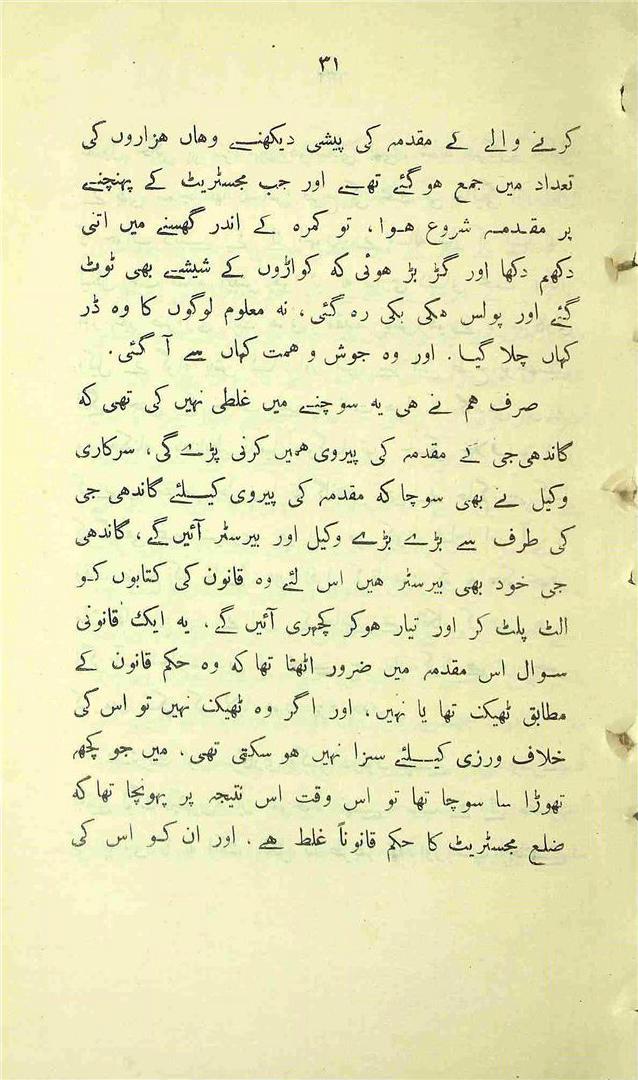 ۳۱
کرنے والے کے مقدمہ کی پیشی دیکھنے وھاں ھزاروں کی
تعداد میں جمع ھوگئے تھے اور جب مجسٹریٹ کے پہنچنے
پر مقدمہ شروع ھوا، تو کمرہ کے اندر گھسنے میں اتنی
دکھم دکھا اور گڑ بڑ ھوئی کہ کواڑوں کے شیشے بھی ٹوٹ
گئے اور پولس ھکی بکی رہ گئی، نہ معلوم لوگوں کا وہ ڈر
کہاں چلا گیا۔ اور وہ جوش و ھمت کہاں سے آ گئی۔
صرف ھم نے ھی یہ سوچنے میں غلطی نہیں کی تھی کہ
گاندھی جی کے مقدمہ کی پیروی ھمیں کرنی پڑے گی، سرکاری
وکیل نے بھی سوچا کہ مقدمہ کی پیروی کیلئے گاندھی جی
کی طرف سے بڑے بڑے وکیل اور بیرسٹر آئیں گے، گاندھی
جی خود بھی بیرسٹر ھیں اس لئے وہ قانون کی کتابوں کو
الٹ پلٹ کر اور تیار ھوکر کچہری آئیں گے۔ یہ ایک قانونی
سوال اس مقدمہ میں ضرور اٹھتا تھا کہ وہ حکم قانون کے
مطابق ٹھیک تھا یا نہیں، اور اگر وہ ٹھیک نہیں تو اس کی
خلاف ورزی کیلئے سزا نہیں ھو سکتی تھی۔ میں جو کچھ
تھوڑا سا سوچا تھا تو اس وقت اس نتیجہ پر پہونچا تھا کہ
ضلع مجسٹریٹ کا حکم قانوناً غلط ھے۔ اور ان کو اس کی